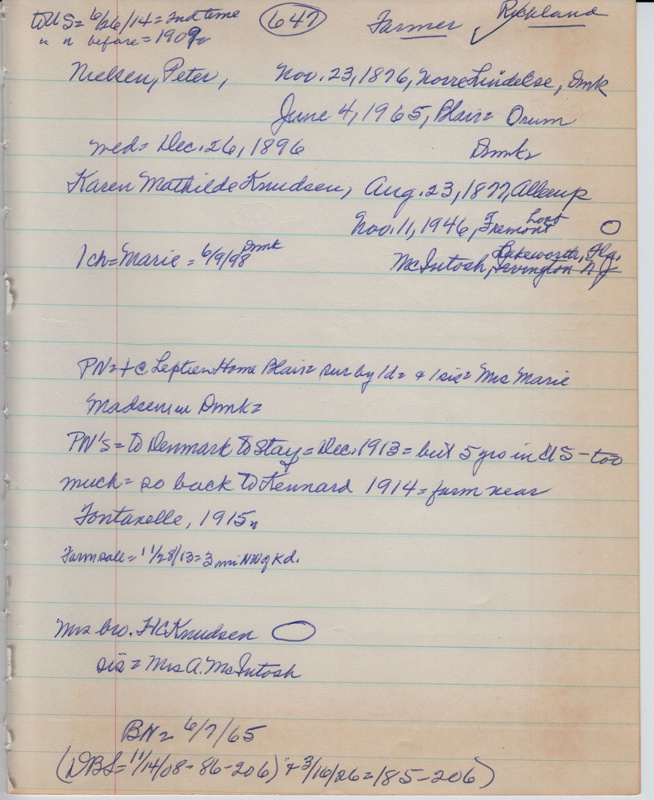 to US = 6/26/14 = 2nd time
" " before = 1909
647
Farmer ✓ Richland
Nielsen, Peter, Nov. 23, 1876, Norre Lindelse, Dmk
June 4, 1965, Blair = Drum
med = Dec. 26, 1896 Dmk
Karen Mathilde Knudsen, Aug. 23, 1877,
Nov. 11, 1946, Fremont
1 ch = Marie = 6/9/98 Dmk McIntosh, Lakeworth, Fla.
Irvington N J
PN = + @ Leptien Home Blair = sur by 1d = & 1 sis = Mrs Marie
Madsen in Dmk =
PN's = to Denmark to Stay = Dec. 1913 = but 5 yrs in US - too
much = so back to Kennard 1914 = farm near
Fontanelle, 1915
Farm sale = 11/28/13 = 3 mi NW of Kd.
Mrs bro. HC Knudsen
sis = Mrs A. McIntosh
BN = 6/7/65
(DBS = 11/14/08 - 86 - 206) & 3/16/26 = 185 - 206)